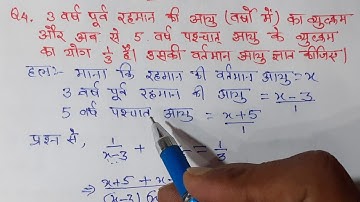 Q4. 3 वर्ष पूर्व रहमान की आयु (वर्षों में) का व्युत्क्रम
और अब से 5 वर्ष पश्चात् आयु के व्युत्क्रम
का योग 1/3 है। उसकी वर्तमान आयु ज्ञात कीजिए।
हल:- माना कि रहमान की वर्तमान आयु = x
3 वर्ष पूर्व रहमान की आयु = x-3/1
5 वर्ष पश्चात् आयु = x+5/1
प्रश्न से, 1/x-3 + = 1/3
⇒ x+5 + x
(x-3)